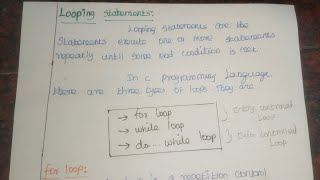 Looping Statements:
Looping Statements are the
Statements execute one or more statements
repeatly until some end condition is met
In c programming Language
there are three types of loops They are
→ for loop
→ while loop } Entry controlled Loop
→ do... while loop } Exit controlled Loop
for loop:
is a repetition control